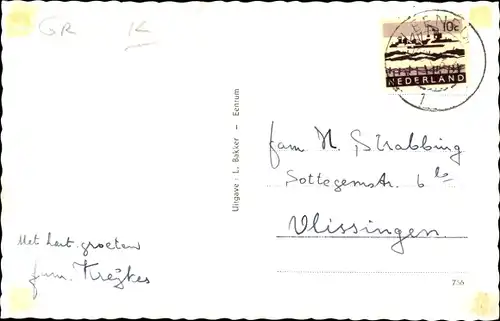 GR K
10c
NEDERLAND
Uitgave: L. Bakker - Eenrum
fam H. Strabbing
Sottegemstr. 6 bs
Vlissingen.
Met hart. groeten
fam. Kreijkes
756